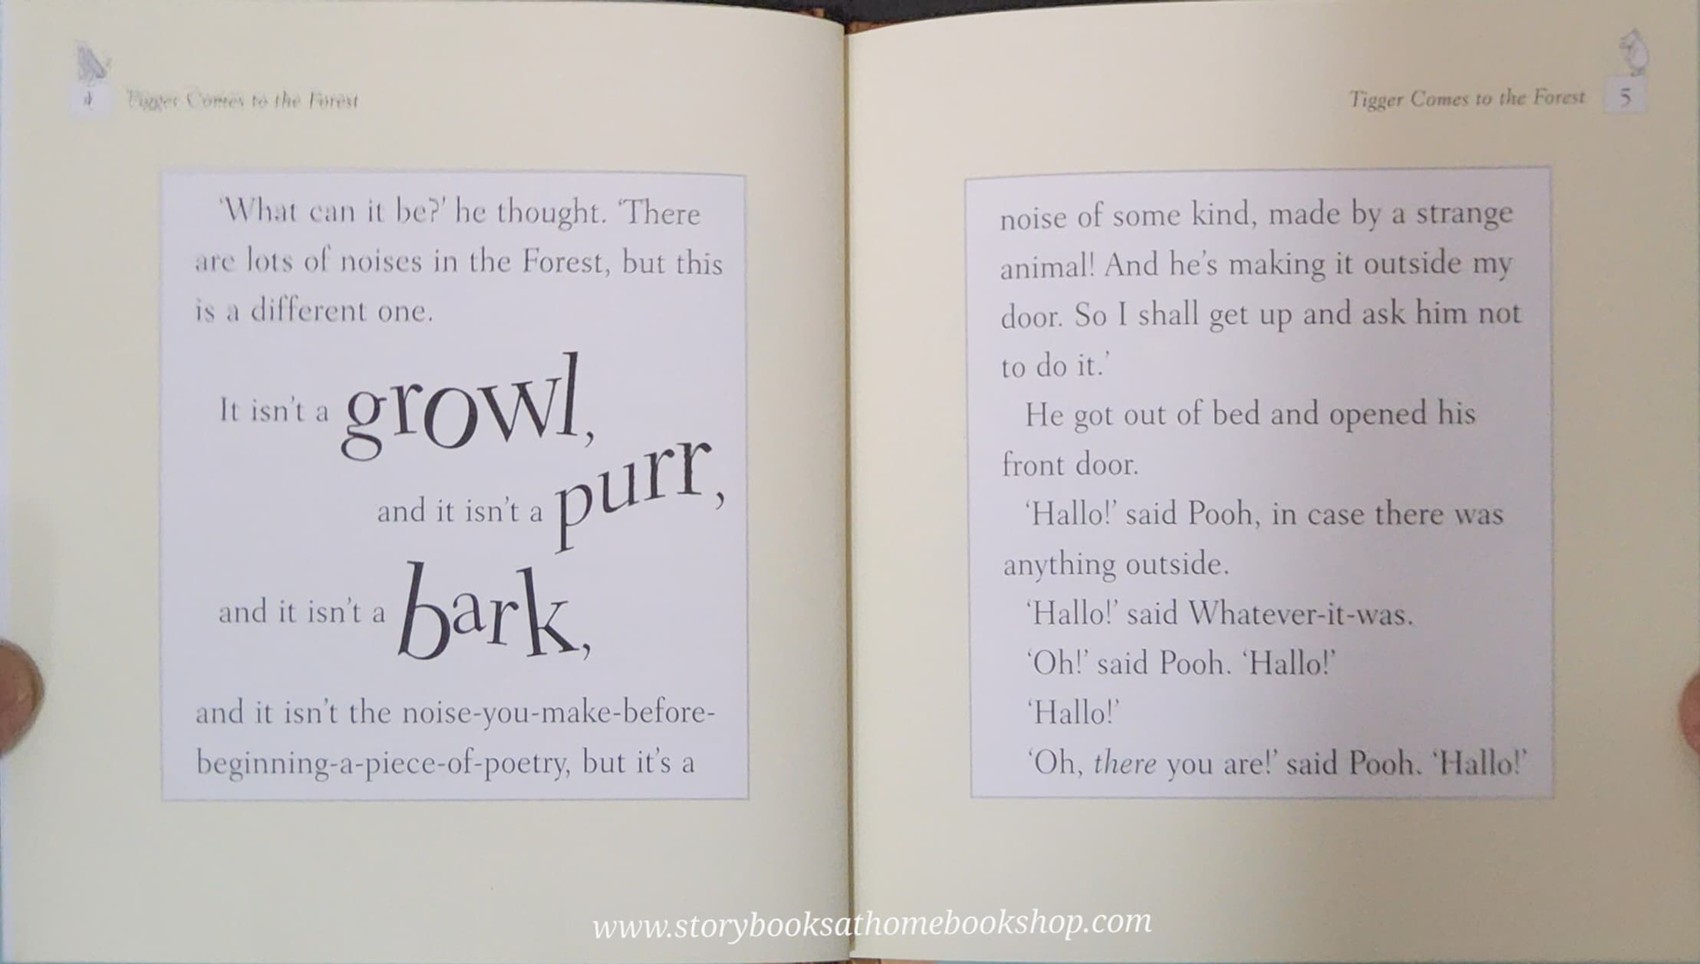 4 Tigger Comes to the Forest
'What can it be?' he thought. 'There
are lots of noises in the Forest, but this
is a different one.
It isn't a growl,
and it isn't a purr,
and it isn't a bark,
and it isn't the noise-you-make-before-
beginning-a-piece-of-poetry, but it's a
Tigger Comes to the Forest 5
noise of some kind, made by a strange
animal! And he's making it outside my
door. So I shall get up and ask him not
to do it.'
He got out of bed and opened his
front door.
'Hallo!' said Pooh, in case there was
anything outside.
'Hallo!' said Whatever-it-was.
'Oh!' said Pooh. 'Hallo!'
'Hallo!'
'Oh, there you are!' said Pooh. 'Hallo!'
www.storybooksathomebookshop.com